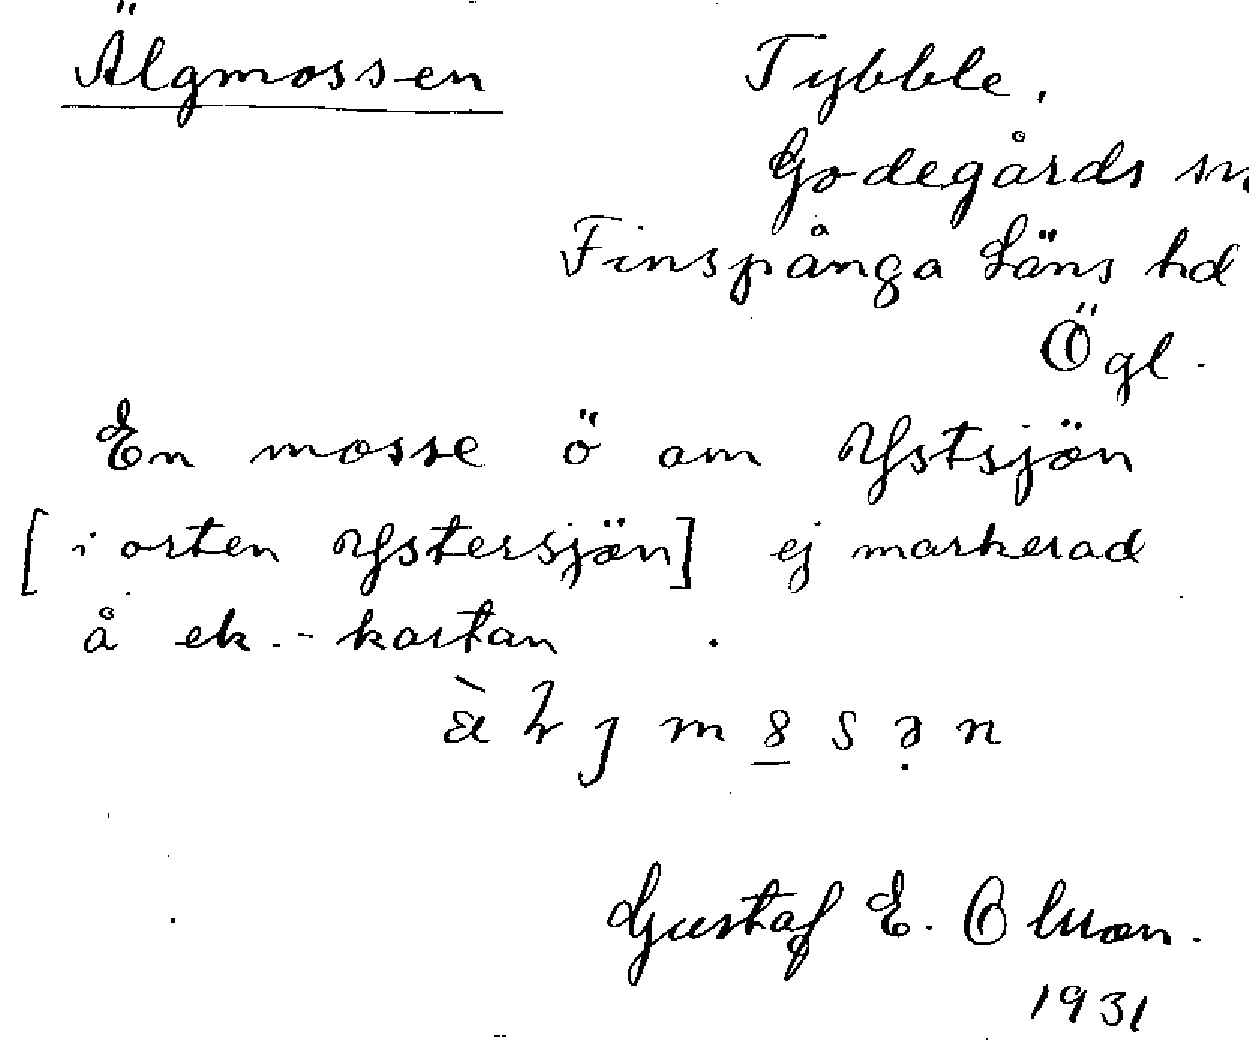 Älgmossen Tybble,
Godegårds
Finspånga Läns hd
Ögl.
En mosse ö om Ystsjön
[i orten Ystersjön] ej markerad
å ek.-kartan.
Gustaf E. Olsson.
1931